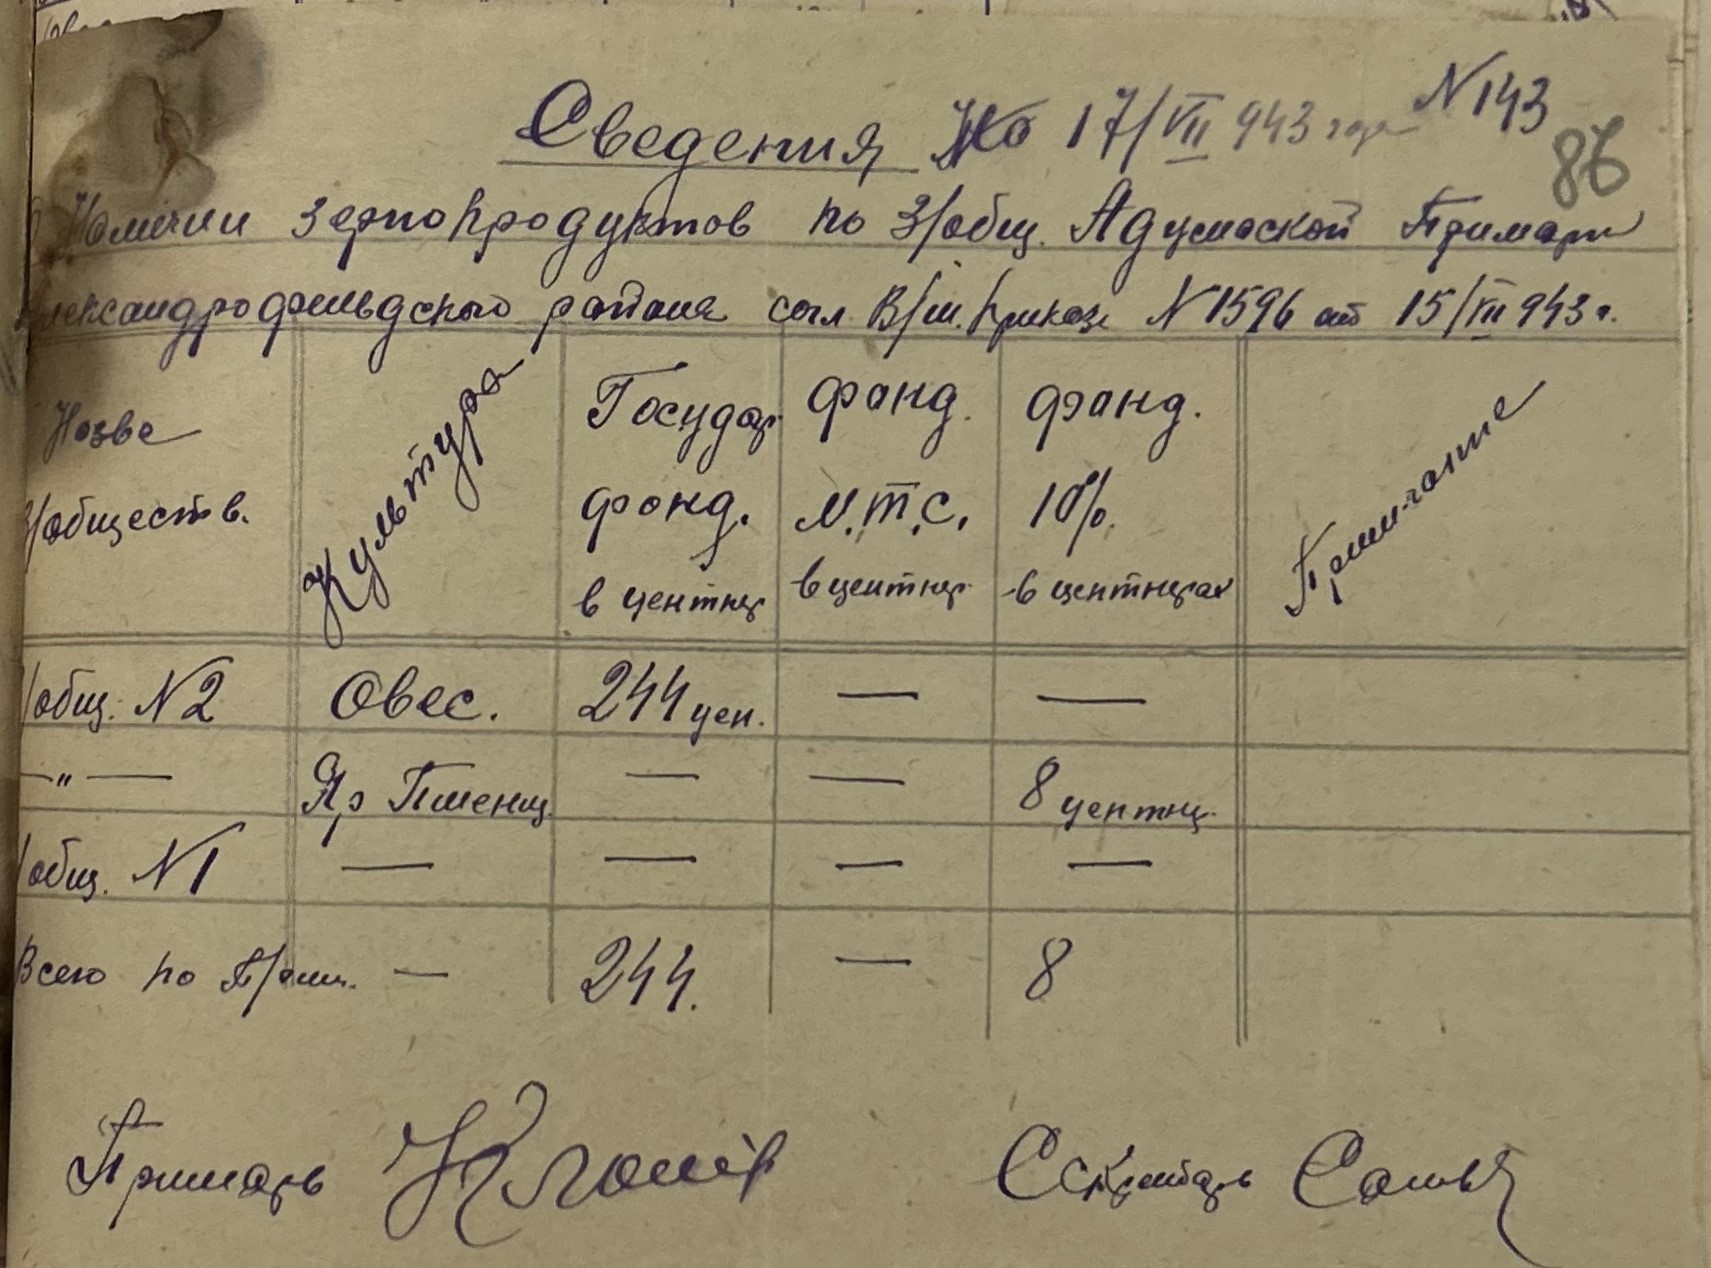 Сведения На 17/VII 943 года N 143
86
Наличии зернопродуктов по З/общ. Адумаской Примари
лександрофельдского района согл. В/ш. приказа N 1596 от 15/VII 943 г.
Назва
З/обществ.
Культура
Государ.
фонд.
в центнер
фонд.
М.Т.С.
в центнер
фонд.
10%.
в центнерах
Примечание
/общ. N 2 Овес. 244 цен. — —
—„— Яр Пшениц. — — 8 центнер.
/общ. N 1 — — — —
Всего по П/рим. — 244. — 8
Примарь
Секретарь